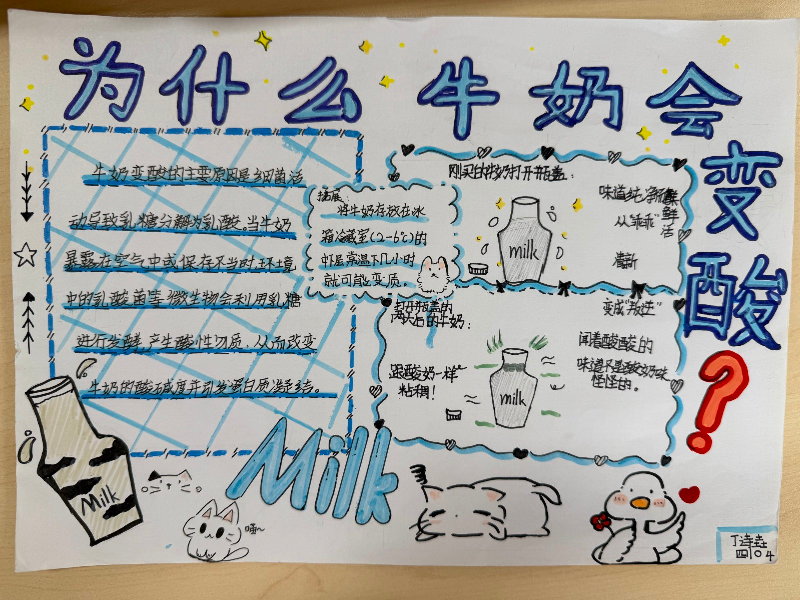 为什么牛奶会
变酸？
牛奶变酸的主要原因是细菌活
动导致乳糖分解为乳酸.当牛奶
暴露在空气中或保存不当时,环境
中的乳酸菌等微生物会利用乳糖
进行发酵,产生酸性物质，从而改变
牛奶的酸碱度并引发蛋白质凝结。
拓展：
将牛奶存放在冰
箱冷藏室(2-6℃)的
常温下几小时
就可能变质。
刚买的牛奶打开瓶盖：
味道纯净新鲜
从"乖乖"鲜活
清新
milk
打开瓶盖的
两天后的牛奶：
变成"叛逆"
跟酸奶一样
粘稠！
闻着酸酸的
味道不是酸奶味
怪怪的。
milk
Milk
Milk
喵~
四104